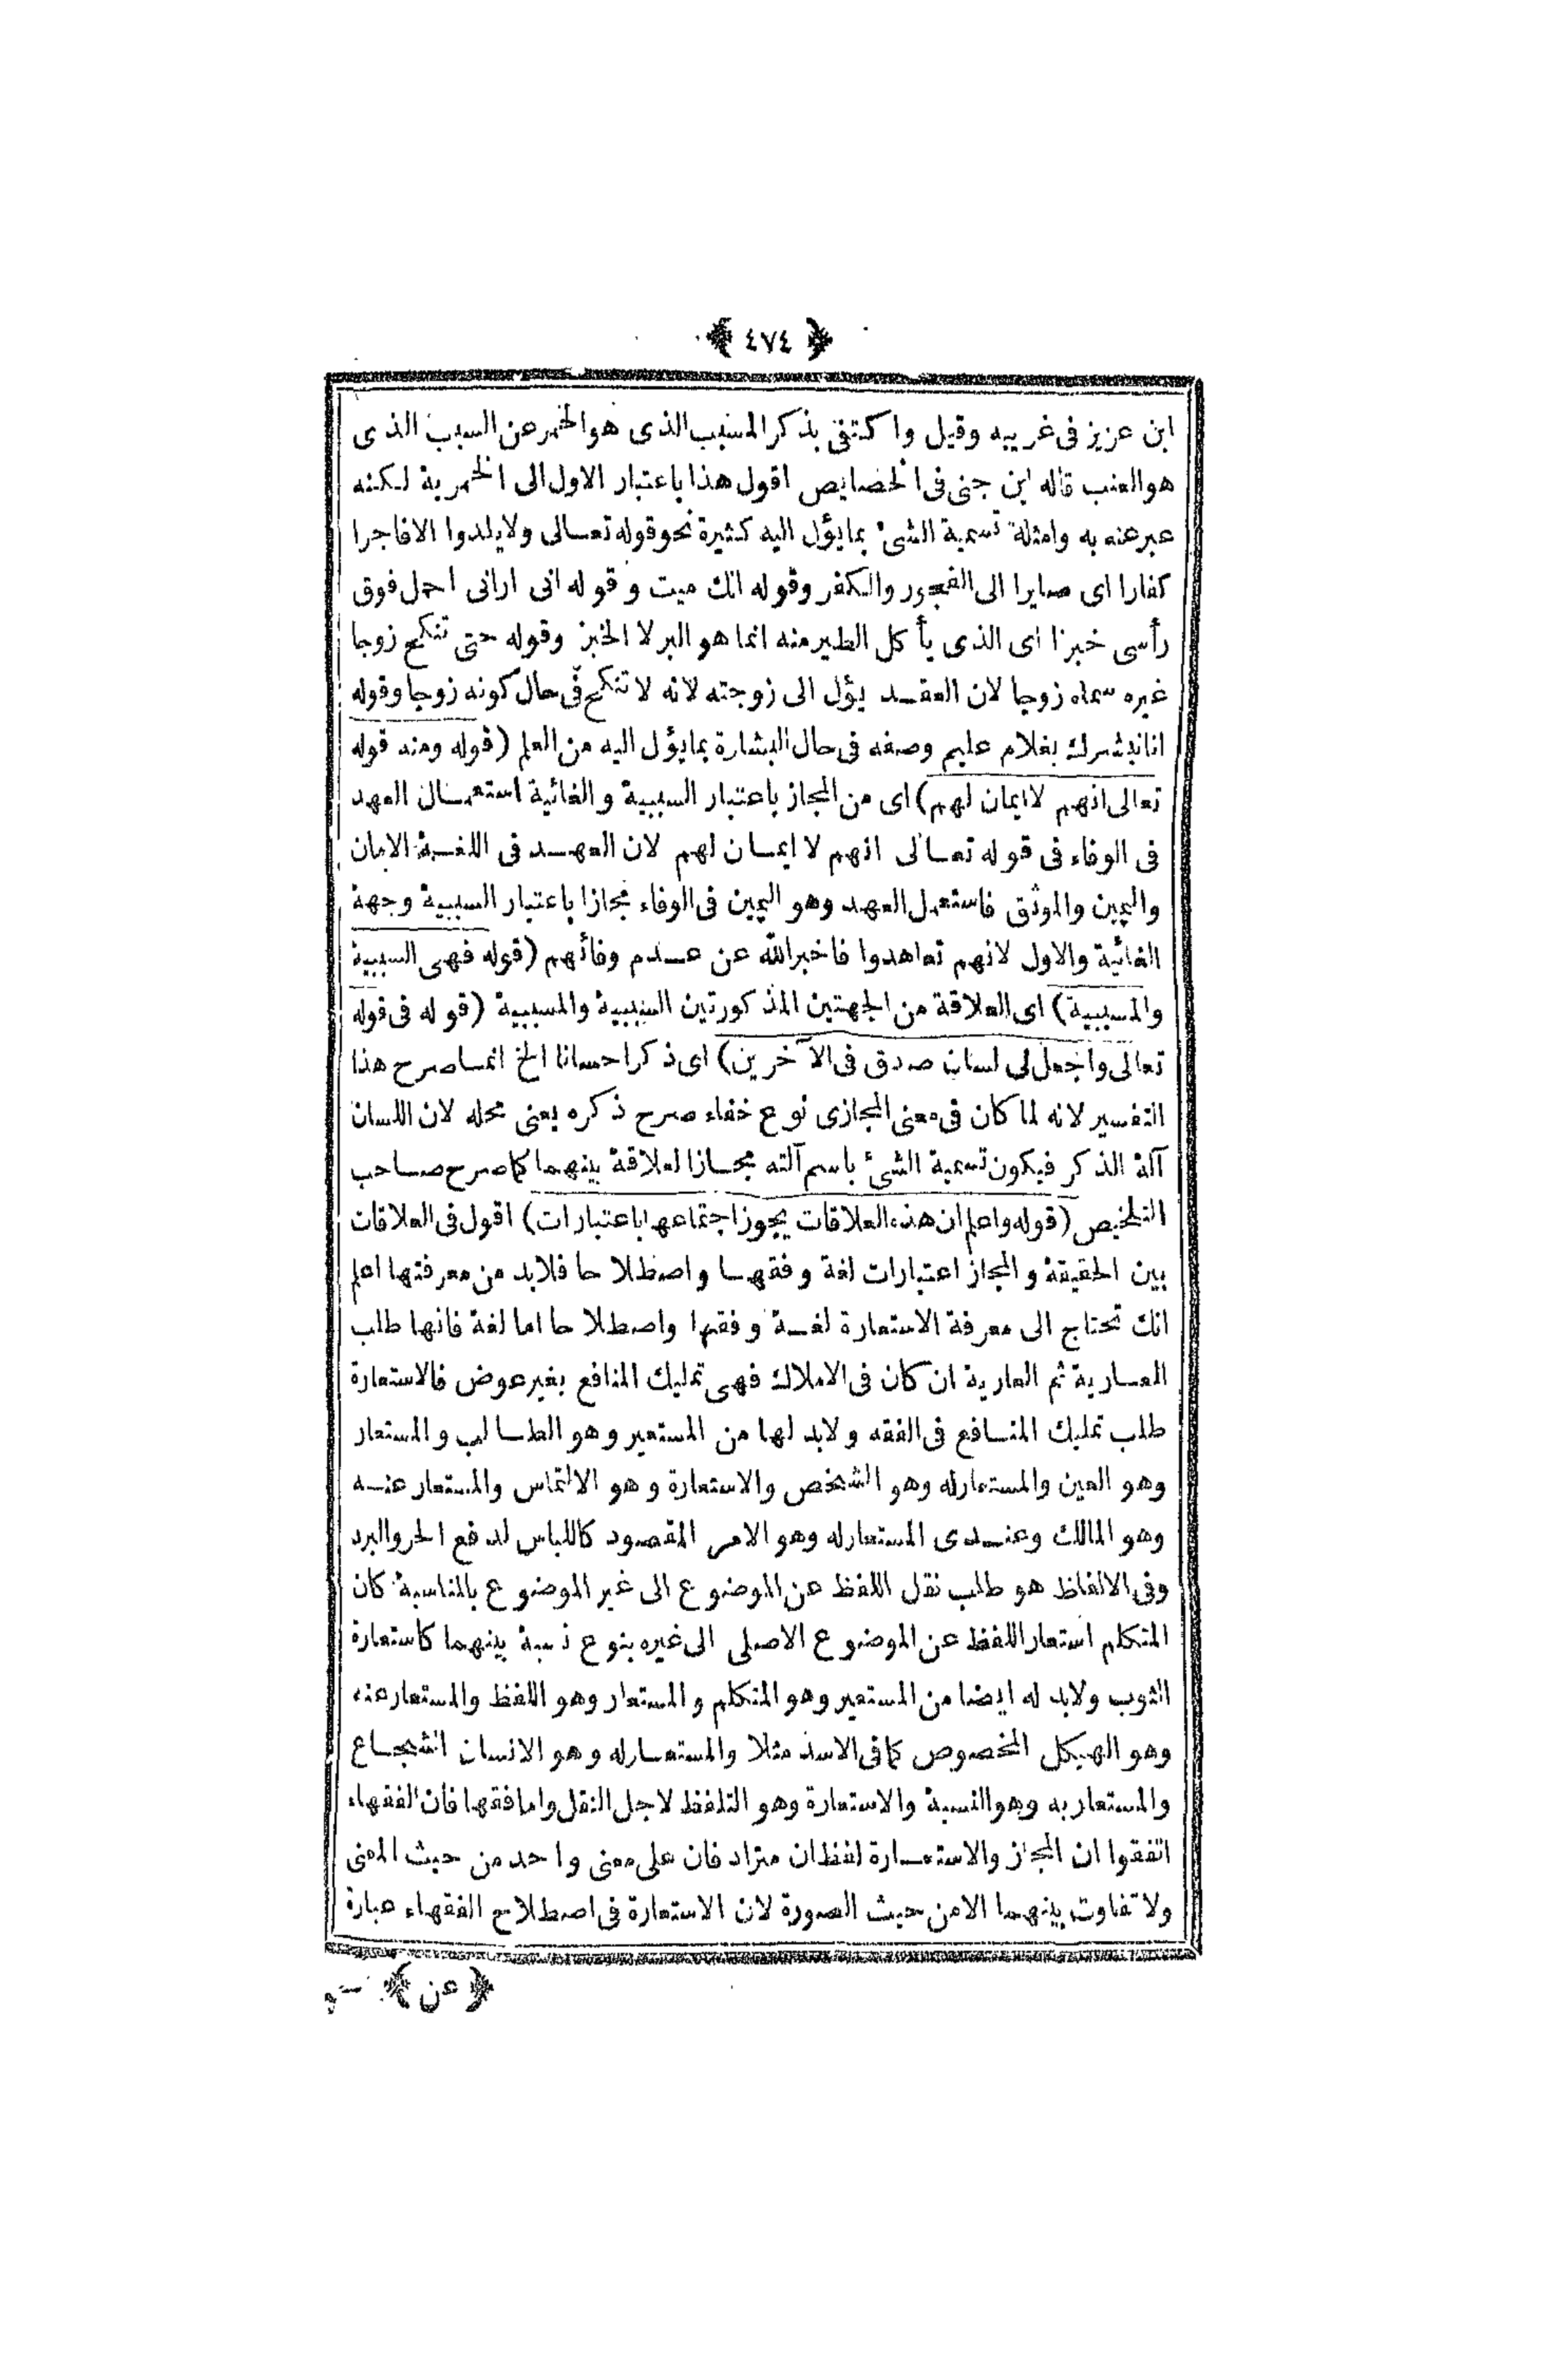 ﴿ ٤٧٤ ﴾
ابن عزيز فى غريبه وقيل واكتفى بذكر المسبب الذى هو الخمر عن السبب الذى
هو العنب قاله ابن جنى فى الخصايص اقول هذا باعتبار الاول الى الخمرية لكنه
عبر عنه به وامثلة تسمية الشئ بما يؤل اليه كثيرة نحو قوله تعالى ولا يلدوا الا فاجرا
كفارا اى صايرا الى الفجور والكفر وقوله انك ميت وقوله انى ارانى احمل فوق
رأسى خبزا اى الذى يأكل الطير منه انما هو البر لا الخبز وقوله حتى تنكح زوجا
غيره سماه زوجا لان العقد يؤل الى زوجته لانه لا تنكح فى حال كونه زوجا وقوله
انا نبشرك بغلام عليم وصفه فى حال البشارة بما يؤل اليه من العلم (قوله ومنه قوله
تعالى انهم لا ايمان لهم) اى من المجاز باعتبار السببية والغائية استعمال العهد
فى الوفاء فى قوله تعالى انهم لا ايمان لهم لان العهد فى اللغة الامان
واليمين والموثق فاستعمل العهد وهو اليمين فى الوفاء مجازا باعتبار السببية وجهة
الغائية والاول لانهم تعاهدوا فاخبر الله عن عدم وفائهم (قوله فهى السببية
والمسببية) اى العلاقة من الجهتين المذكورتين السببية والمسببية (قوله فى قوله
تعالى واجعل لى لسان صدق فى الآخرين) اى ذكرا حسانا الخ انما صرح هذا
التفسير لانه لما كان فى معنى المجازى نوع خفاء صرح ذكره يعنى محله لان اللسان
آلة الذكر فيكون تسمية الشئ باسم آلته مجازا لعلاقة بينهما كما صرح صاحب
التلخيص (قوله واعلم ان هذه العلاقات يجوز اجتماعها باعتبارات) اقول فى العلاقات
بين الحقيقة والمجاز اعتبارات لغة وفقها واصطلاحا فلابد من معرفتها اعلم
انك تحتاج الى معرفة الاستعارة لغة وفقها واصطلاحا اما لغة فانها طلب
العارية ثم العارية ان كان فى الاملاك فهى تمليك المنافع بغير عوض فالاستعارة
طلب تمليك المنافع فى الفقه ولابد لها من المستعير وهو الطالب والمستعار
وهو العين والمستعار له وهو الشخص والاستعارة وهو الالتماس والمستعار عنه
وهو المالك وعندى المستعار له وهو الامر المقصود كاللباس لدفع الحر والبرد
وفى الالفاظ هو طلب نقل اللفظ عن الموضوع الى غير الموضوع بالمناسبة كان
المتكلم استعار اللفظ عن الموضوع الاصلى الى غيره بنوع نسبة بينهما كاستعارة
الثوب ولابد له ايضا من المستعير وهو المتكلم والمستعار وهو اللفظ والمستعار عنه
وهو الهيكل المخصوص كما فى الاسد مثلا والمستعار له وهو الانسان الشجاع
والمستعار به وهو النسبة والاستعارة وهو التلفظ لاجل النقل واما فقها فان الفقهاء
اتفقوا ان المجاز والاستعارة لفظان مترادفان على معنى واحد من حيث المعنى
ولا تفاوت بينهما الا من حيث الصورة لان الاستعارة فى اصطلاح الفقهاء عبارة
﴿ عن ﴾